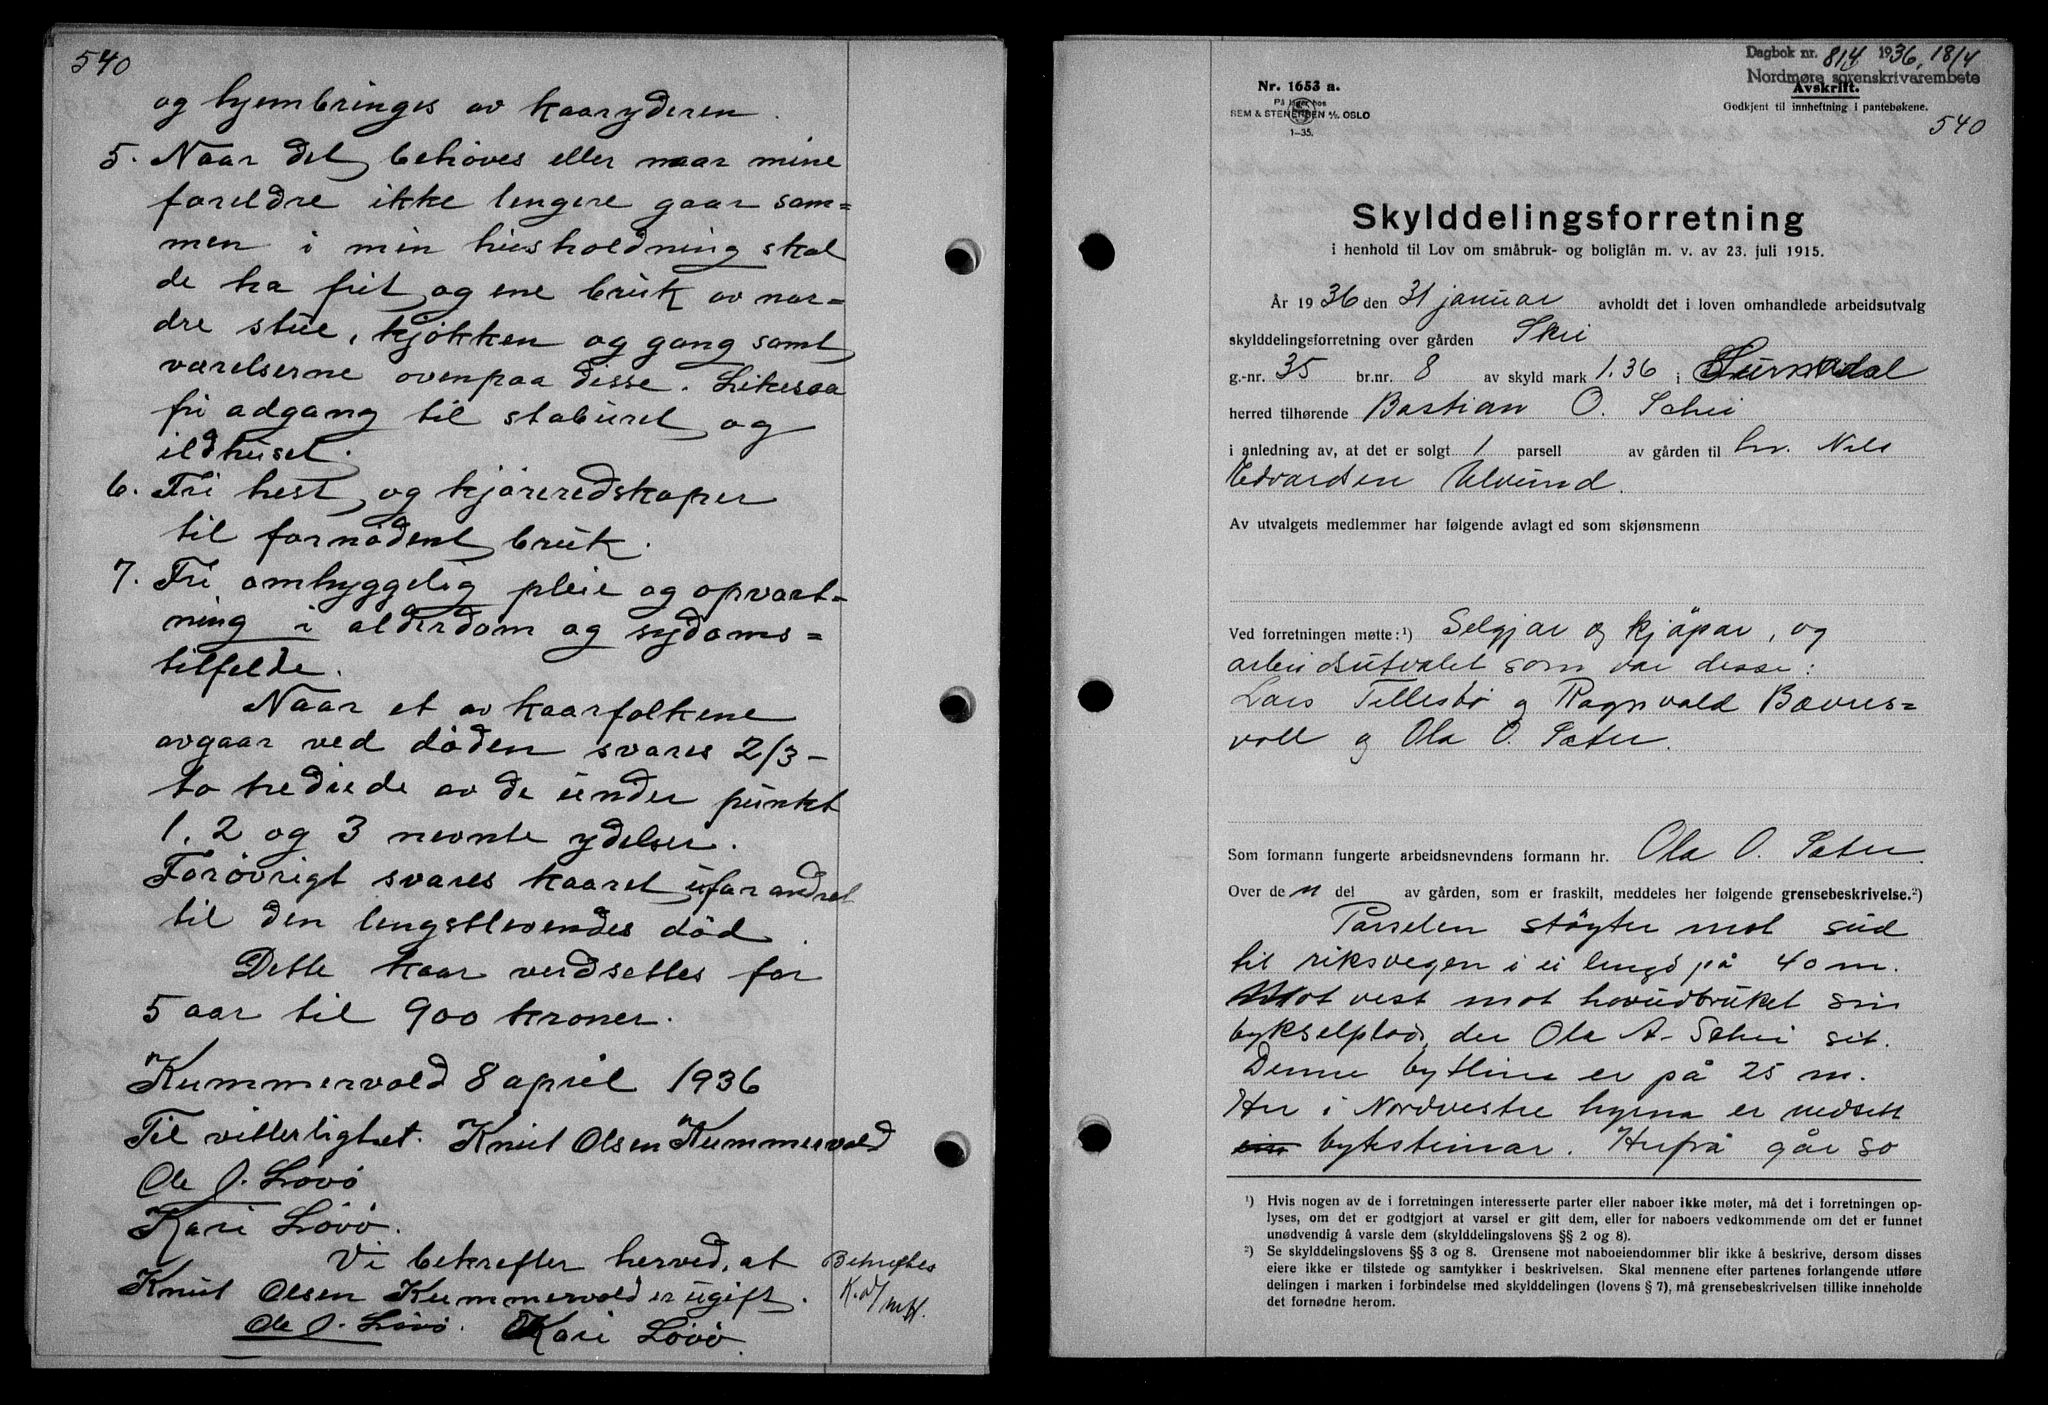 540
og hjembringes av kaaryderen.
5. Naar det behøves eller naar mine
foreldre ikke lengere gaar sam=
men i min husholdning skal
de ha frit og ene bruk av nor=
dre stue, kjøkken og gang samt
værelserne ovenpaa disse. Likesaa
fri adgang til staburet og
ildhuset.
6. Fri hest og kjøreredskaper
til fornødent bruk.
7. Fri omhyggelig pleie og opvart=
ning i alderdom og sydoms=
tilfelde.
Naar et av kaarfolkene
avgaar ved døden svares 2/3 -
to trediede av de under punkt
1, 2 og 3 nevnte ydelser.
Forøvrigt svares kaaret uforandret
til den lengstlevendes død.
Dette kaar verdsettes for
5 aar til 900 kroner.
Kummervold 8 april 1936
Til vitterlighet. Knut Olsen Kummervold
Ole J. Løvø
Kari Løvø.
Vi bekrefter herved, at
Knut Olsen Kummervold er ugift.
Ole J. Løvø. Kari Løvø.
Bekreftes
Dagbok nr. 814 1936, 18/4
Nordmøre sorenskrivarembete
Nr. 1653 a.
Avskrift.
På lager hos
Godkjent til innheftning i pantebøkene.
SEM & STENERSEN A/S OSLO
540
1-35.
Skylddelingsforretning
i henhold til Lov om småbruk- og boliglån m. v. av 23. juli 1915.
År 1936 den 31 januar avholdt det i loven omhandlede arbeidsutvalg
skylddelingsforretning over gården Skei
g.-nr. 35 br.nr. 8 av skyld mark 1.36 i Surnadal
herred tilhørende Bastian O. Schei
i anledning av, at det er solgt 1 parsell av gården til hr. Nils
Edvardsen Ulvund.
Av utvalgets medlemmer har følgende avlagt ed som skjønsmenn
Ved forretningen møtte:¹) Selgjar og kjøpar, og
arbeidsutvalet som var disse:
Lars Tellesbø og Ragnvald Bævus=
voll og Ola O. Sæter.
Som formann fungerte arbeidsnevndens formann hr. Ola O. Sæter.
Over den del av gården, som er fraskilt, meddeles her følgende grensebeskrivelse.²)
Parselen støyter mot sud
til riksvegen i ei lengd på 40 m.
Mot vest mot hovudbruket sin
bykselplads, der Ola A. Schei sit.
Denne bytline er på 25 m.
Her i Nordvestre hyrna er nedsett
bytesteinar. Herfrå går so
¹) Hvis nogen av de i forretningen interesserte parter eller naboer ikke møter, må det i forretningen op-
lyses, om det er godtgjort at varsel er gitt dem, eller for naboers vedkommende om det er funnet
unødvendig å varsle dem (skylddelingslovens §§ 2 og 8).
²) Se skylddelingslovens §§ 3 og 8. Grensene mot naboeiendommer blir ikke å beskrive, dersom disses
eiere ikke er tilstede og samtykker i beskrivelsen. Skal mennene efter partenes forlangende utføre
delingen i marken i forbindelse med skylddelingen (lovens § 7), må grensebeskrivelsen tillike inneholde
det fornødne herom.